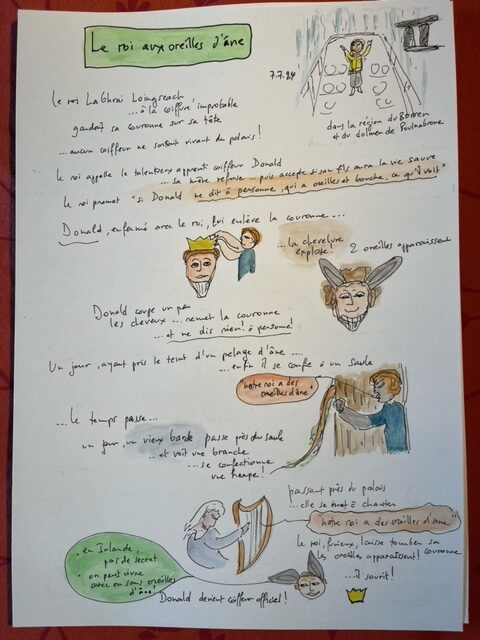 Le roi aux oreilles d'âne
7.7.24
dans la région du Burren
et du dolmen de Poulnabrone
Le roi Labhrai Loingseach
... à la coiffure improbable
gardait sa couronne sur sa tête
... aucun coiffeur ne sortait vivant du palais !
Le roi appelle le talentueux apprenti coiffeur Donald
... sa mère refuse ... puis accepte si son fils aura la vie sauve
Le roi promet "si Donald ne dit à personne, qui a oreilles et bouche, ce qu'il voit"
Donald, enfermé avec le roi, lui enlève la couronne ...
... la chevelure
explose ! 2 oreilles apparaissent
Donald coupe un peu
les cheveux ... remet la couronne
... et ne dis rien ! à personne !
Un jour, ayant pris le teint d'un pelage d'âne ....
... enfin il se confie à un saule
"notre roi a des
oreilles d'âne"
... le temps passe ...
un jour, un vieux barde passe près du saule
... et voit une branche
... se confectionne
une harpe !
passant près du palais
... elle se met à chanter
"notre roi a des oreilles d'âne"
le roi, furieux, laisse tomber sa
couronne
les oreilles apparaissent !
... il sourit !
• en Irlande
pas de secret
• on peut vivre
avec ou sans oreilles
d'âne !
Donald devient coiffeur officiel !